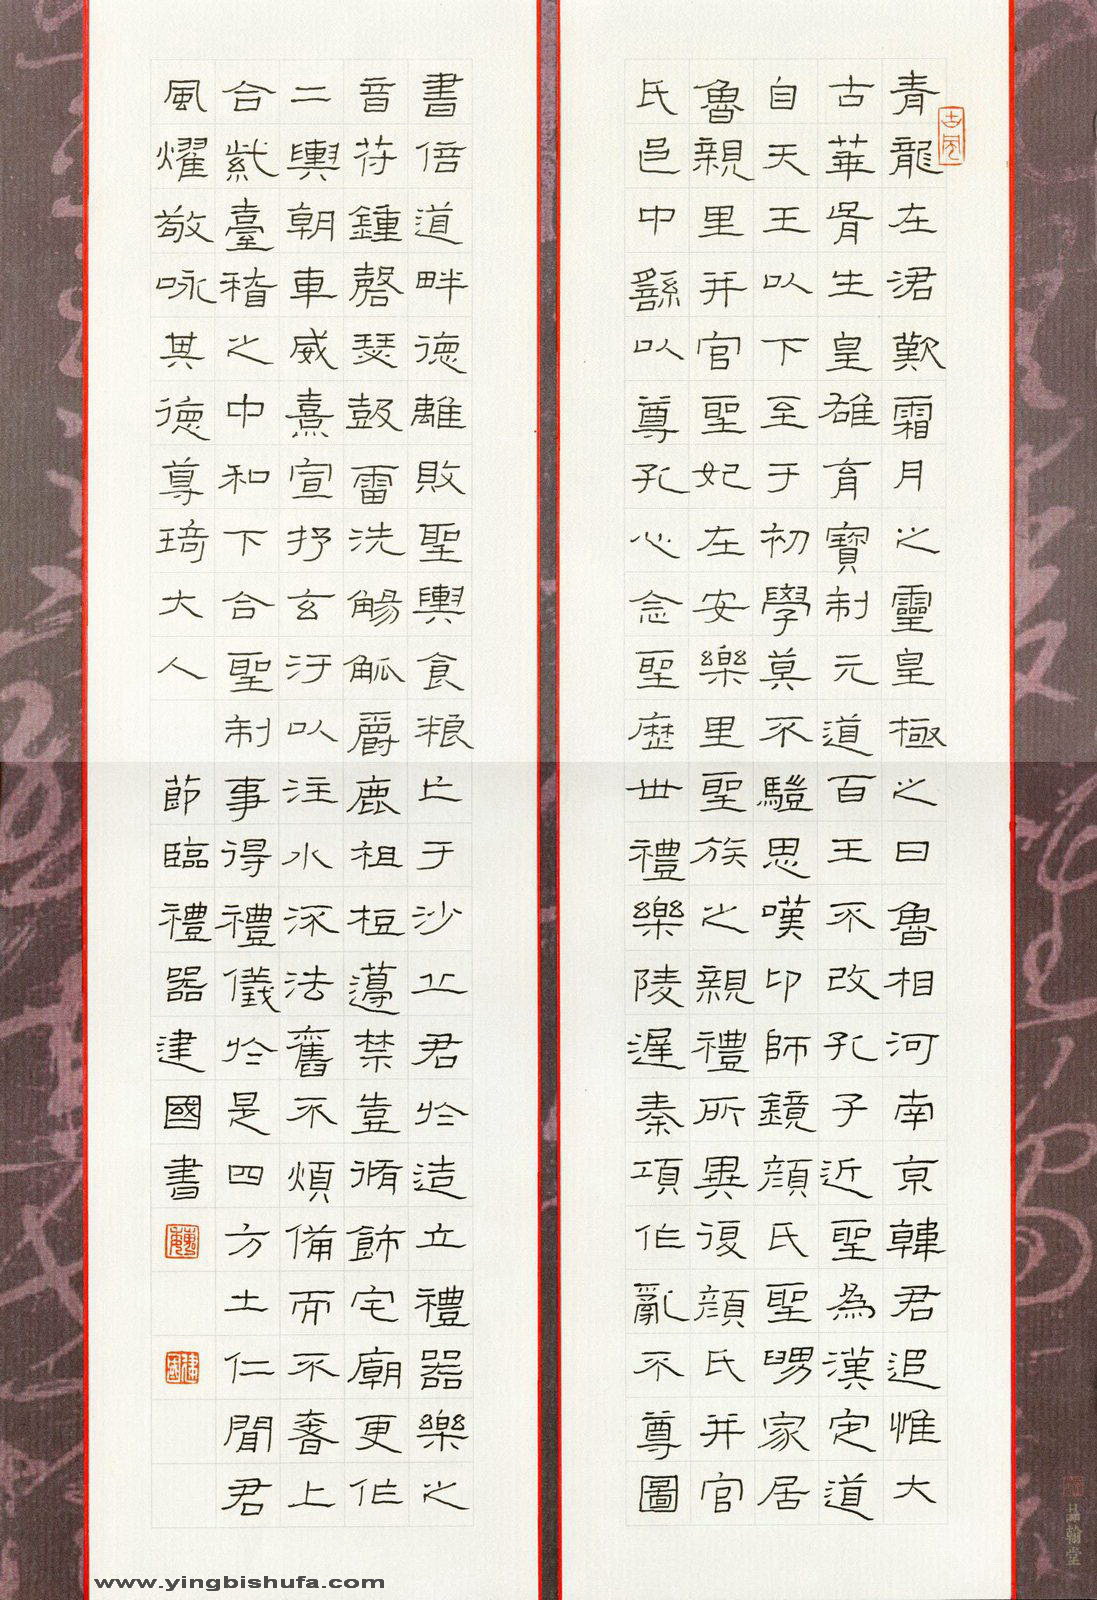 青龍在涒歎霜月之靈皇極之日魯相河南京韓君追惟大
古華胥生皇雄育寶制元道百王不改孔子近聖為漢定道
自天王以下至于初學莫不騩思嘆卬師鏡顏氏聖舅家居
魯親里并官聖妃在安樂里聖族之親禮所異復顏氏并官
氏邑中繇以尊孔心念聖歷世禮樂陵遲秦項作亂不尊圖
書倍道畔德離敗聖輿食粮亡于沙丘君於造立禮器樂之
音苻鍾磬瑟鼓雷洗觴觚爵鹿柤梪籩禁壺脩飾宅廟更作
二輿朝車威熹宣抒玄汙以注水流法舊不煩備而不奢上
合紫臺稽之中和下合聖制事得禮儀於是四方土仁聞君
風燿敬咏其德尊琦大人
節臨禮器建國書
品翰堂
www.yingbishufa.com